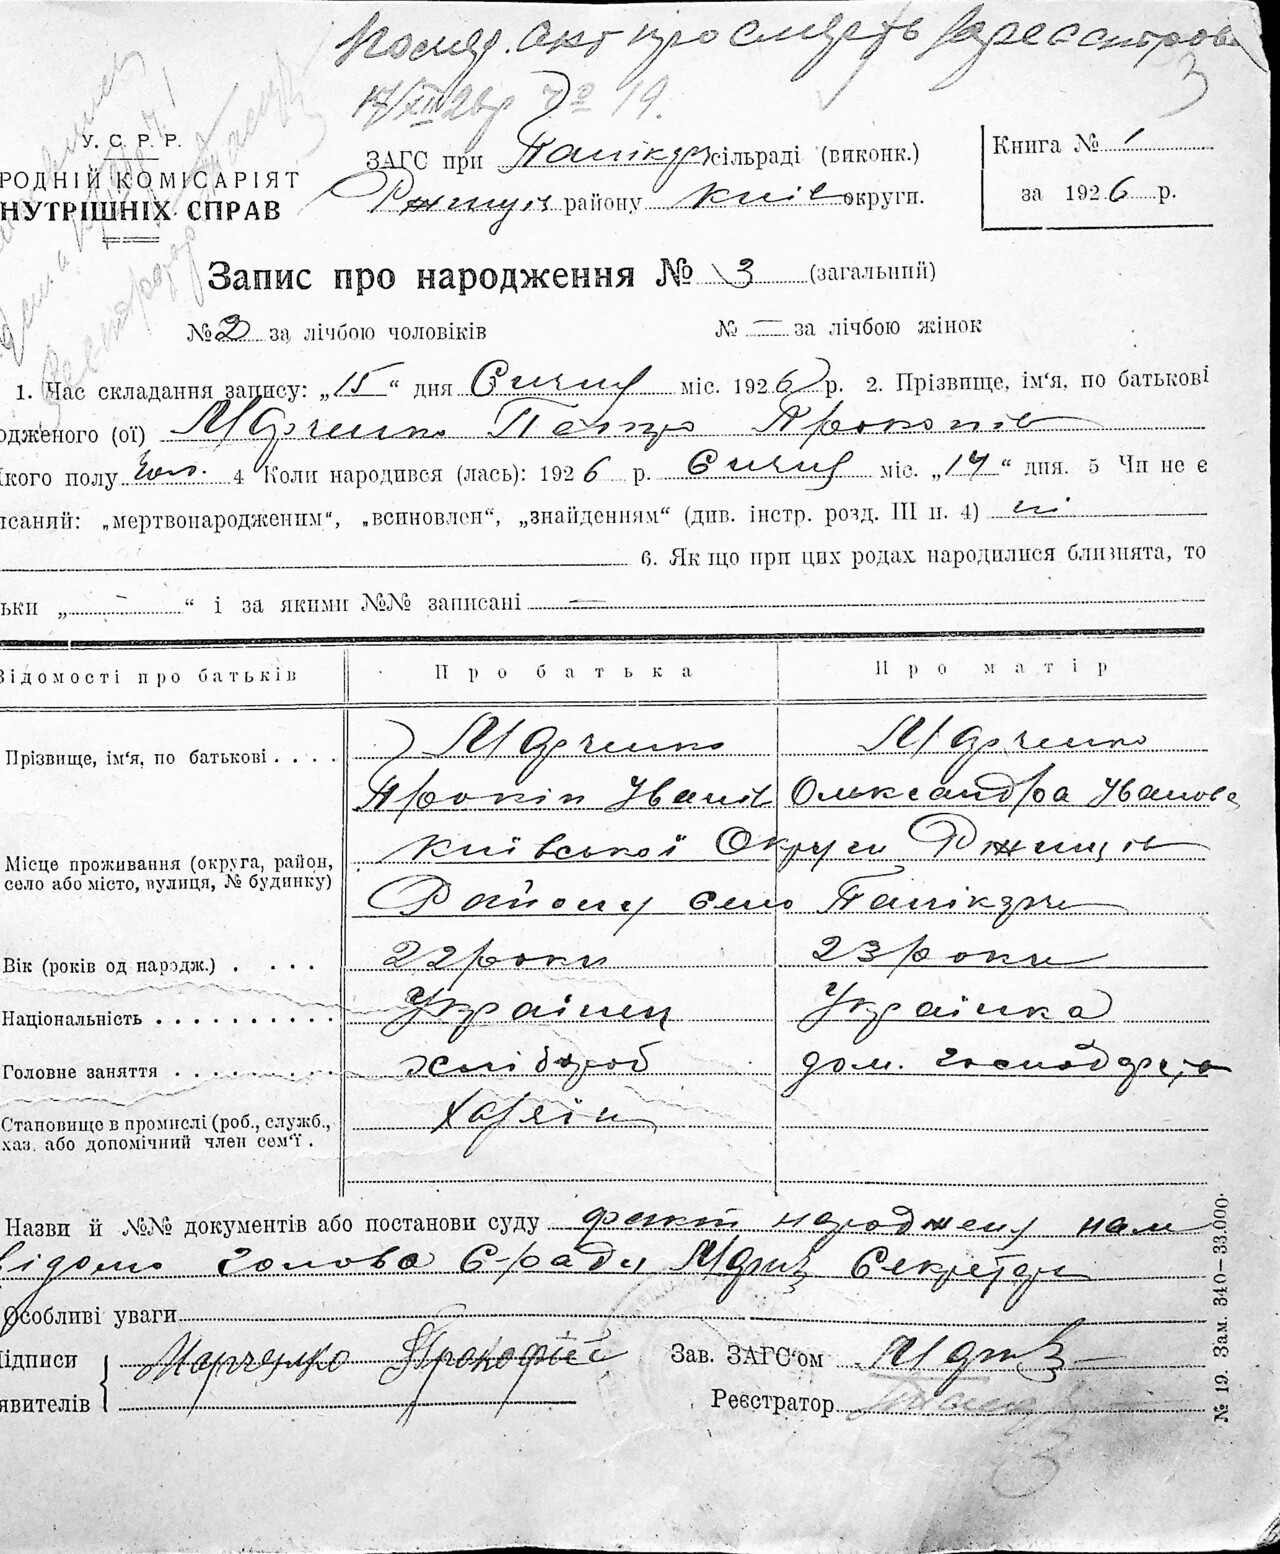 Послід. акт про смерть зареєстрова
17/XII 26р № 19.
У. С. Р. Р.
РОДНІЙ КОМІСАРІЯТ
НУТРІШНІХ СПРАВ
ЗАГС при Папікарськ сільраді (виконк.)
Ржищів району Київ округи.
Книга № 1
за 1926 р.
Запис про народження № 3 (загальний)
№ 2 за лічбою чоловіків № — за лічбою жінок
1. Час складання запису: „15“ дня Січня міс. 1926 р. 2. Прізвище, ім'я, по батькові
одженого (ої) Марченко Петро Прокопів
якого полу чол. 4 Коли народився (лась): 1926 р. Січня міс. „14“ дня. 5 Чи не є
исаний: „мертвонародженим“, „всиновлен“, „знайденням“ (див. інстр. розд. III п. 4) ні
6. Як що при цих родах народилися близнята, то
льки „ - “ і за якими №№ записані —
Відомості про батьків Про батька Про матір
Прізвище, ім'я, по батькові . . . . Марченко Марченко
Прокіп Іванів Олександра Іванова
Місце проживання (округа, район, село або місто, вулиця, № будинку) Київської Округи Ржищів
Району село
Вік (років од народж.) . . . . 22 роки 23 роки
Національність . . . . . . . . . . Українец Українка
Головне заняття . . . . . . . . . хлібороб дом. господарка
Становище в промислі (роб., служб., хаз. або допомічний член сем'ї . Хазяін
Назви й №№ документів або постанови суду факт народжену нам
відомо голова С/ради Секретар
Особливі уваги
Підписи Марченко Прокофій Зав. ЗАГС'ом
явителів Реєстратор
№ 19. Зам. 340—33.000.
3